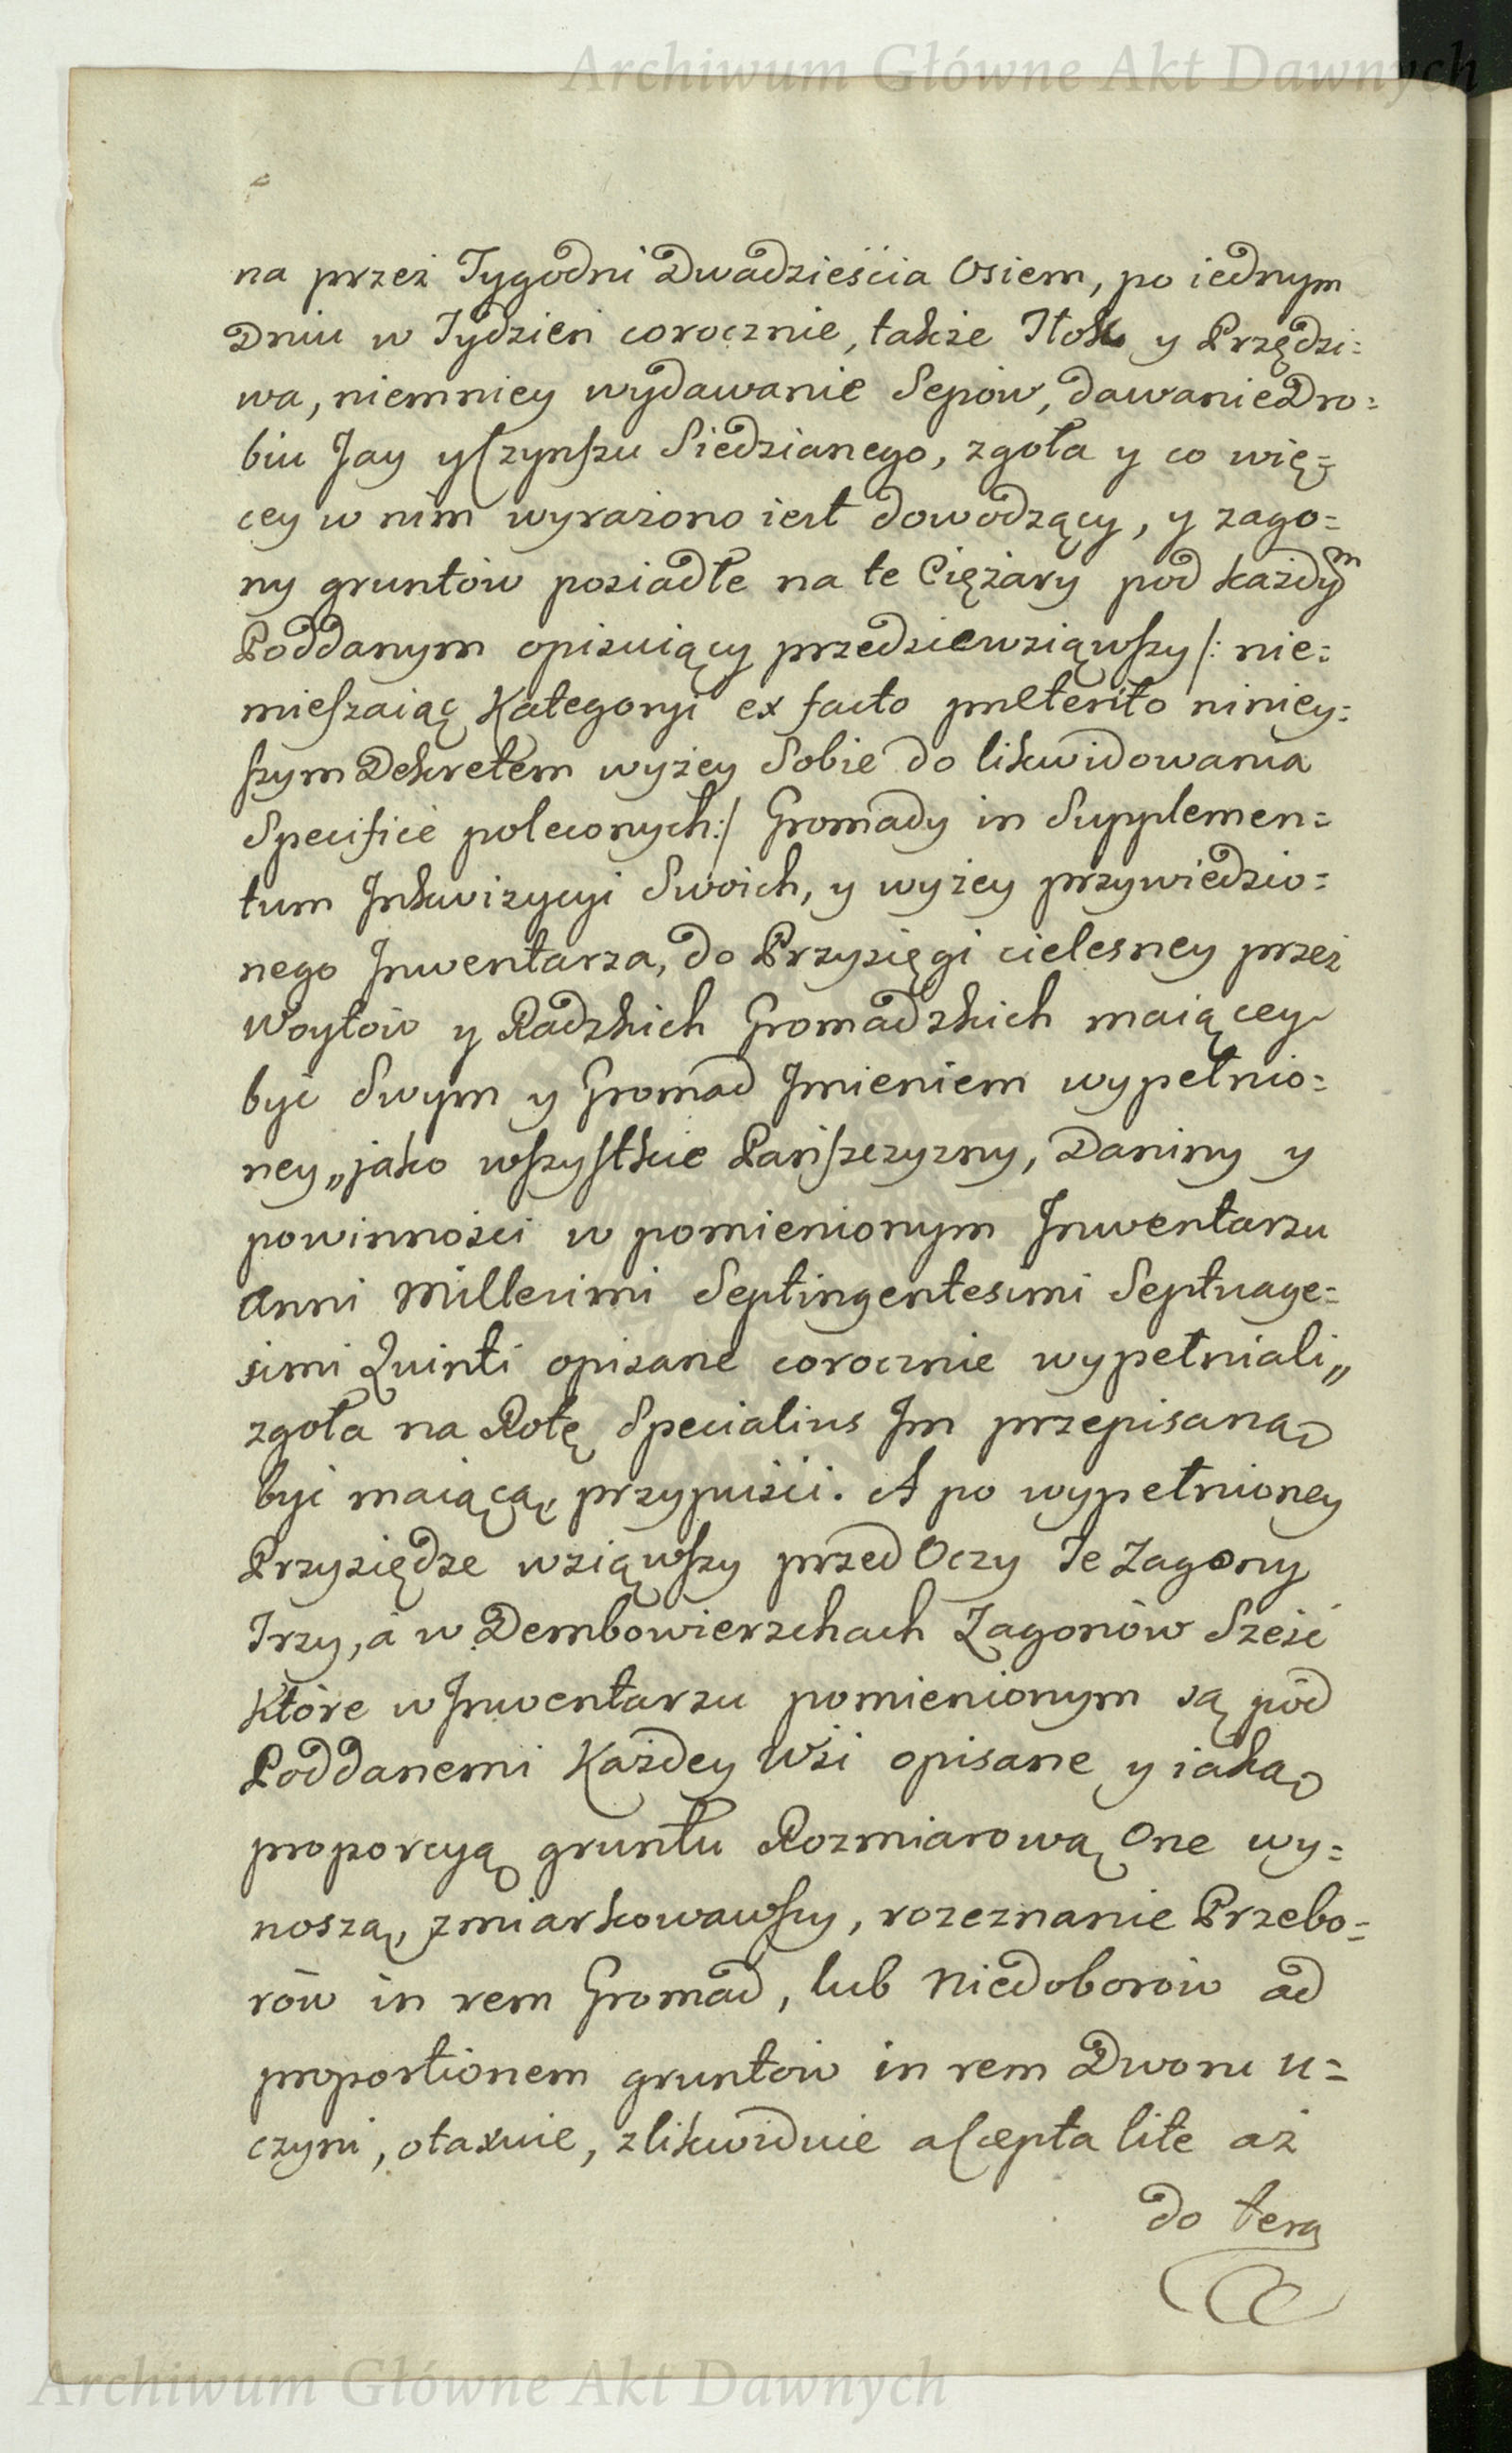 Archiwum Główne Akt Dawnych
na przez Tygodni Dwadzieścia Osiem, po iednym
Dniu w Tydzień corocznie, także Tłok y Przędzi=
wa, niemniey wydawanie Sepów, dawanie Dro=
biu Jay y Czynszu Siedzianego, zgoła y co wię=
cey w nim wyrażono iest dowodzący, y zago=
ny gruntów posiadłe na te Ciężary pod każdym
Poddanym opisuiący przedsiewziąwszy /: nie=
mieszaiąc Kategoryi ex facto preterito niniey=
szym Dekretem wyżey Sobie do likwidowania
Specifice poleconych :/ Gromady in Supplemen=
tum Inkwizycyi Swoich, y wyżey przywiedzio=
nego Inwentarza, do Przysięgi cielesney przez
Woytów y Radzkich Gromadzkich maiącey
być Swym y Gromad Imieniem wypełnio=
ney „jako wszystkie Pańszczyzny, Daniny y
powinności w pomienionym Inwentarzu
Anni Millesimi Septingentesimi Septuage=
simi Quinti opisane corocznie wypełniali„
zgoła na Rotę Specialius Im przepisaną
być maiącą, przypuści. A po wypełnioney
Przysiędze wziąwszy przed Oczy Te Zagony
Trzy, a w Dembowierzchach Zagonów Sześć
które w Inwentarzu pomienionym są pod
Poddanemi Każdey Wsi opisane y iaką
proporcyą gruntu Rozmiarową One wy=
noszą, zmiarkowawszy, rozeznanie Przebo=
rów in rem Gromad, lub Niedoborów ad
proportionem gruntów in rem Dworu u=
czyni, otaxuie, zlikwiduie a Cepta lite aż
do tera
Archiwum Główne Akt Dawnych